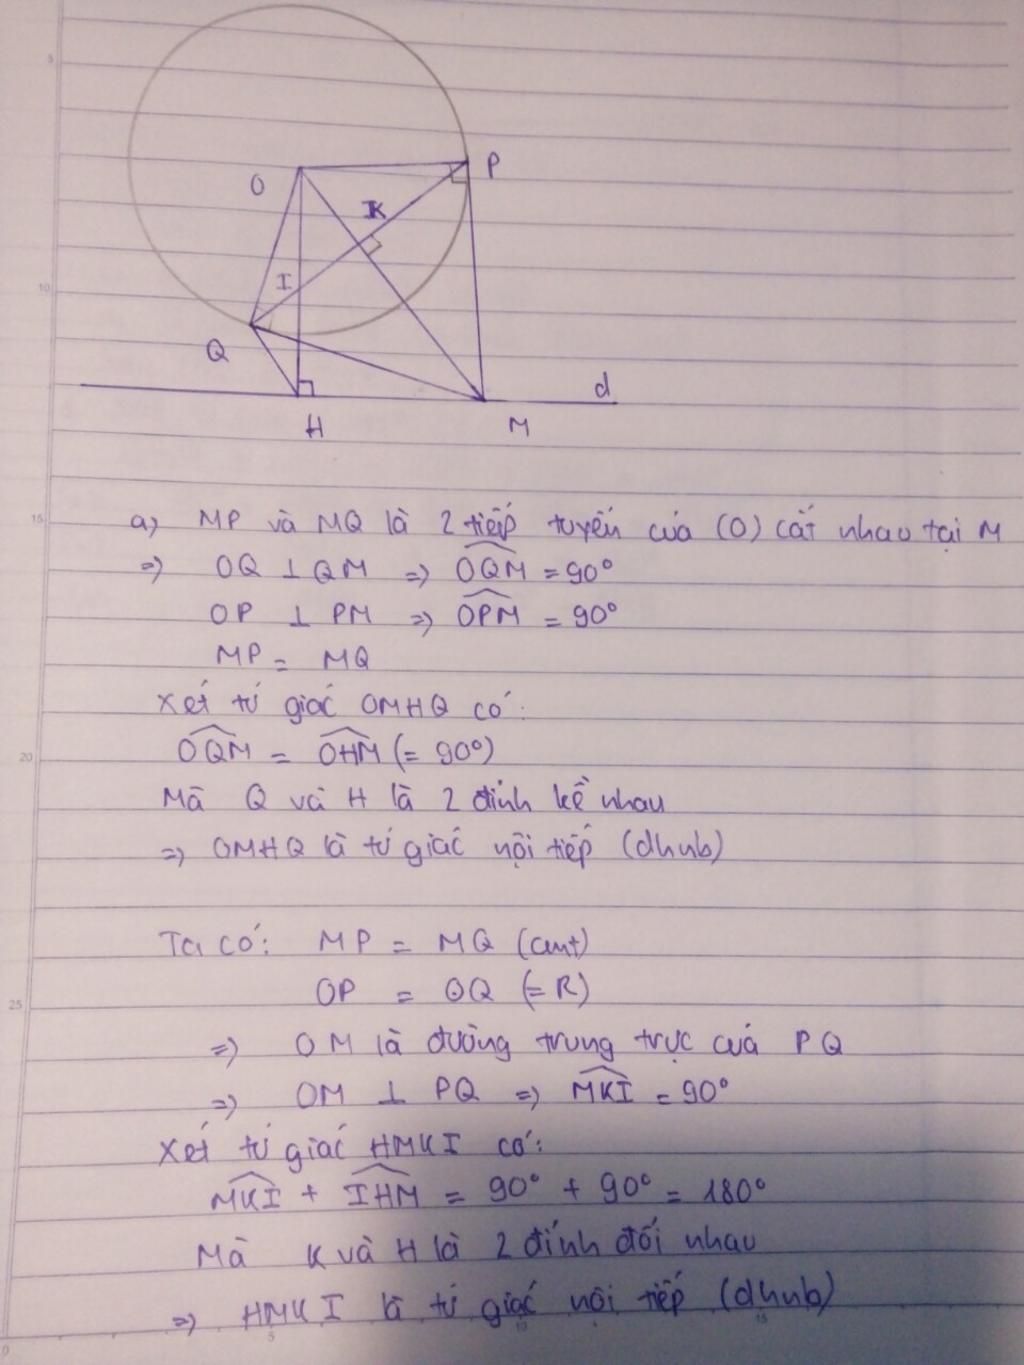 O
P
K
I
Q
d
H
M
a) MP và MQ là 2 tiếp tuyến của (O) cắt nhau tại M
=> OQ ⊥ QM => \widehat{OQM} = 90°
OP ⊥ PM => \widehat{OPM} = 90°
MP = MQ
Xét tứ giác OMHQ có:
\widehat{OQM} = \widehat{OHM} (= 90°)
Mà Q và H là 2 đỉnh kề nhau
=> OMHQ là tứ giác nội tiếp (dhnb)
Ta có: MP = MQ (cmt)
OP = OQ (= R)
=> OM là đường trung trực của PQ
=> OM ⊥ PQ => \widehat{MKI} = 90°
Xét tứ giác HMKI có:
\widehat{MKI} + \widehat{IHM} = 90° + 90° = 180°
Mà K và H là 2 đỉnh đối nhau
=> HMKI là tứ giác nội tiếp (dhnb)